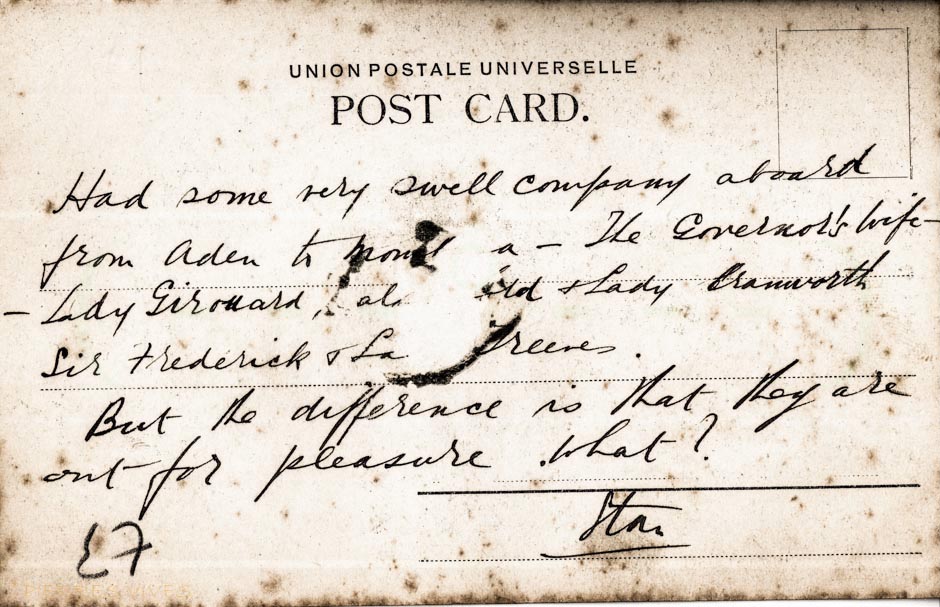 UNION POSTALE UNIVERSELLE
POST CARD.
Had some very swell company aboard
from Aden to a – The Governor's Wife –
– Lady Girouard, & Lady Cranworth
Sir Frederick & Treeves.
But the difference is that they are
out for pleasure. What?
Stan
£7